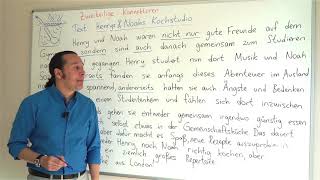 Zweiteilige Konnektoren
Text Henrys & Noahs Kochstudio
Henry und Noah waren nicht nur gute Freunde auf dem
sondern sind auch danach gemeinsam zum Studieren
gegangen. Henry studiert dort Musik und Noah
fanden sie anfangs dieses Abenteuer im Ausland
andererseits hatten sie auch Ängste und Bedenken
einem Studentenheim und fühlen sich dort inzwischen
gehen sie entweder gemeinsam irgendwo günstig essen
selbst etwas in der Gemeinschaftsküche. Das dauert
aber dafür macht es Spaß, neue Rezepte auszuprobieren
Henry noch Noah richtig kochen, aber
ziemlich großes Repertoire
aus London.